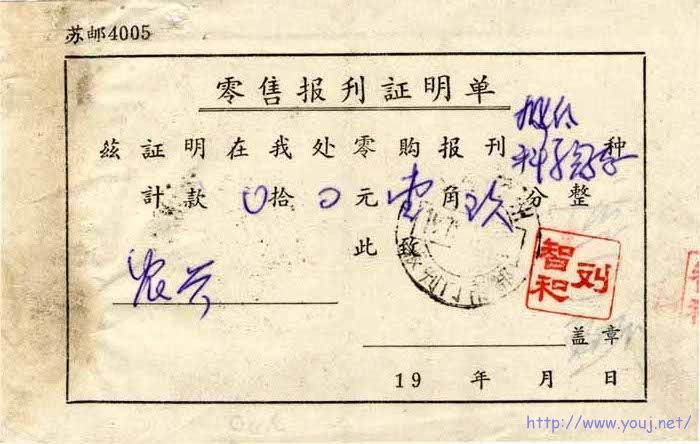 苏邮4005
零售报刊証明单
兹証明在我处零购报刊 种
計款 0 拾 0 元 壹 角 玖 分整
此致
农兴
刘智和
盖章
19 年 月 日
http://www.youj.net/